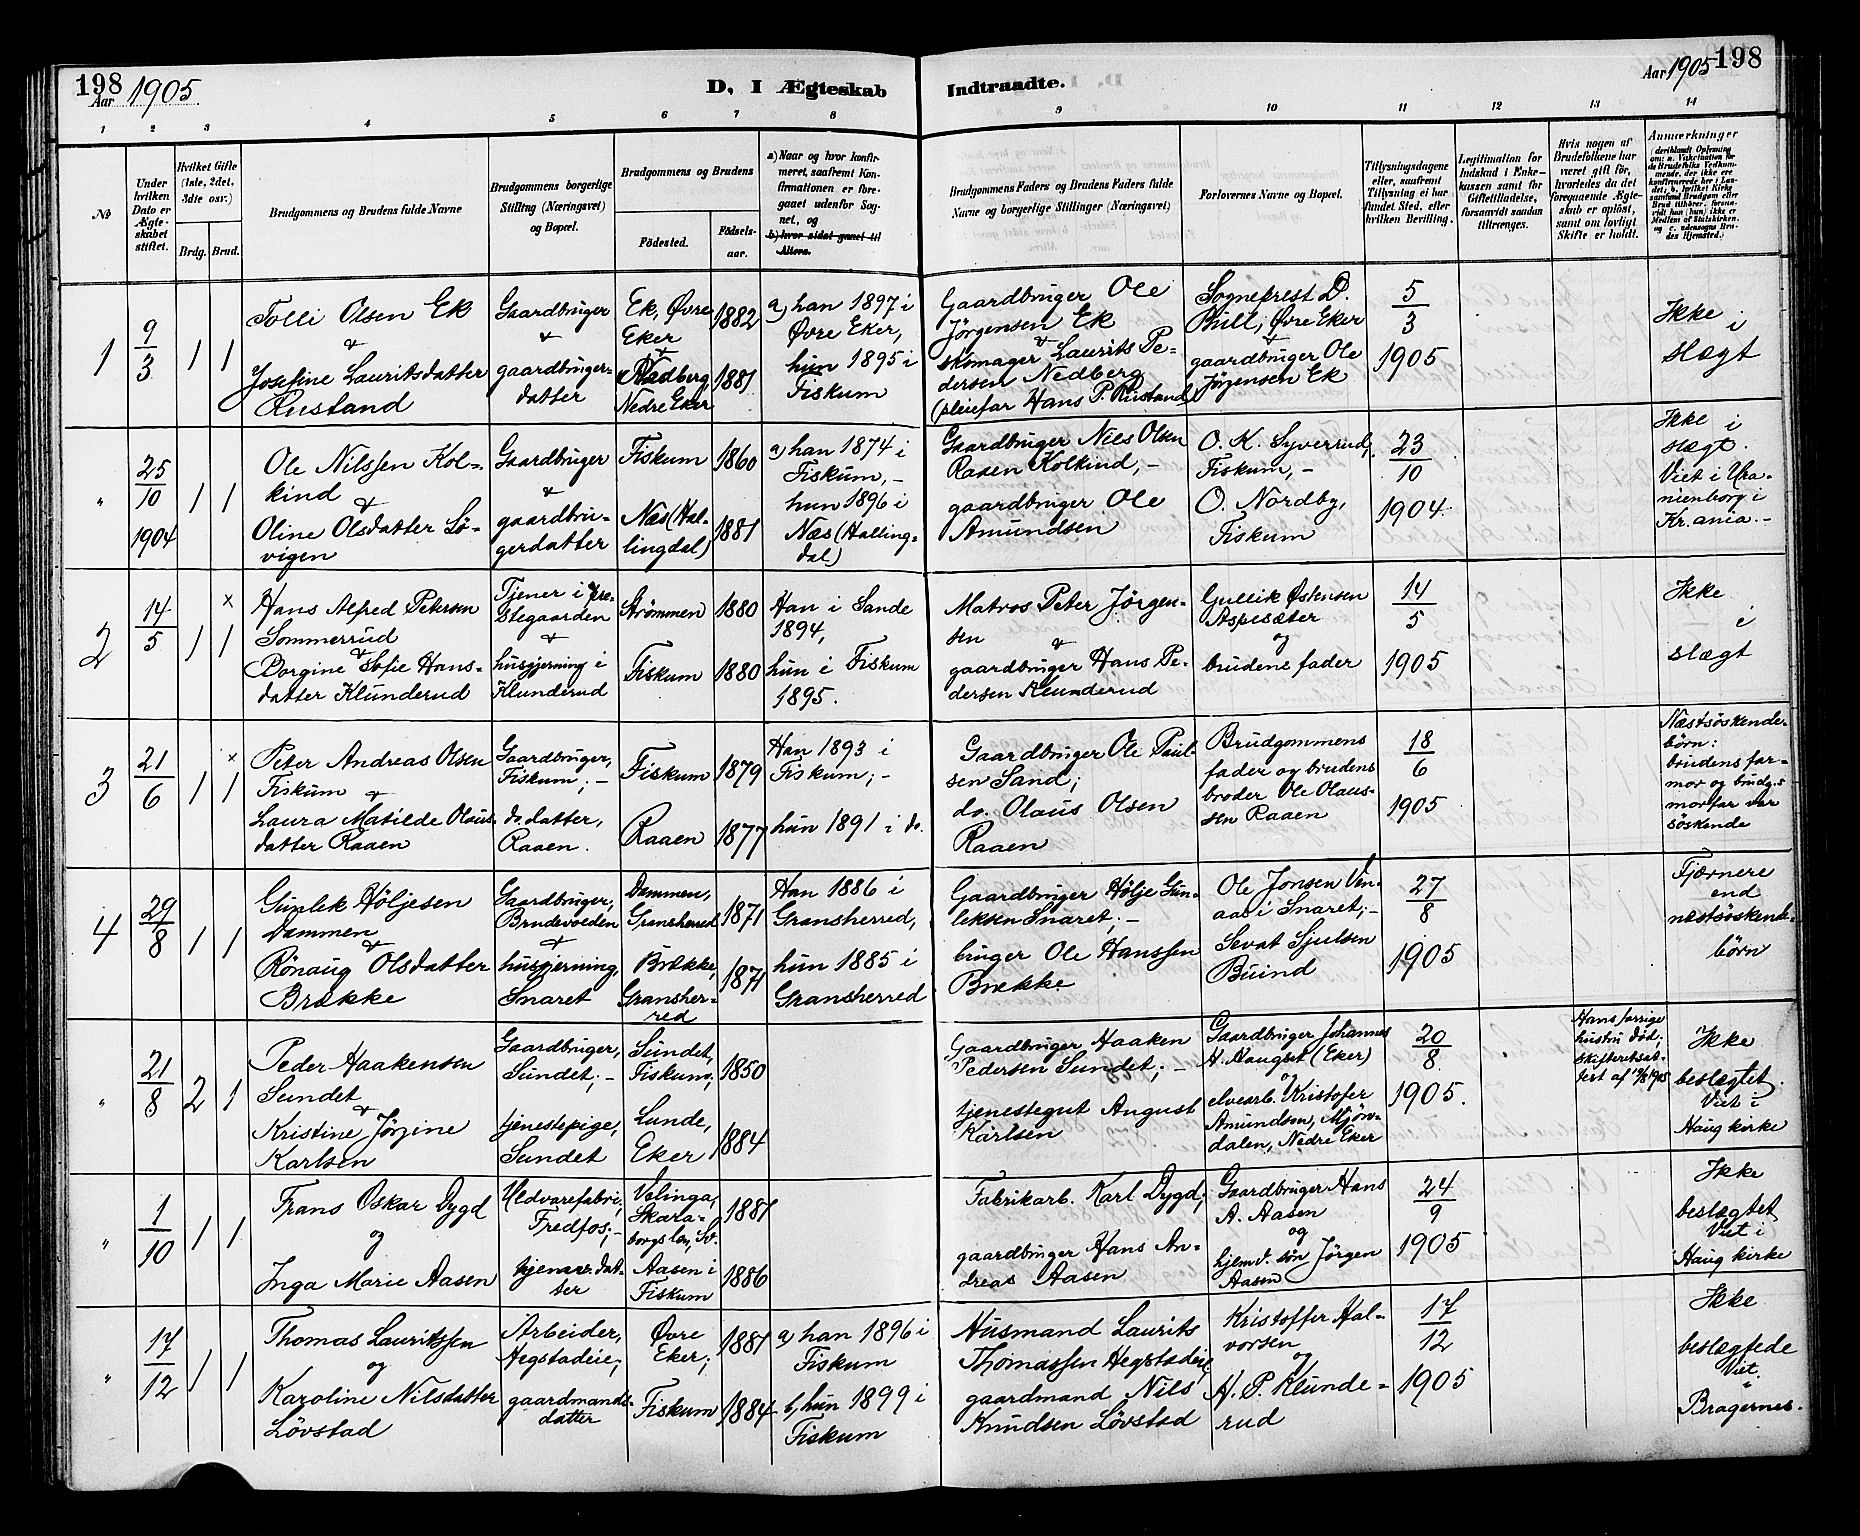 198
Aar 1905
D, I Ægteskab
Indtraadte.
Aar 1905
198
1 2 3 4 5 6 7 8 9 10 11 12 13 14
No
Under hvilken Dato er Ægteskabet stiftet.
Hvilket Gifte (1ste, 2det, 3die osv.)
Brdg. Brud.
Brudgommens og Brudens fulde Navne
Brudgommens borgerlige Stilling (Næringsvei) og Bopæl.
Brudgommens og Brudens
Födested.
Födselsaar.
a) Naar og hvor konfirmeret, saafremt Konfirmationen er foregaaet udenfor Sognet, og
b) hvor sidst gaaet til Alters.
Brudgommens Faders og Brudens Faders fulde Navne og borgerlige Stillinger (Næringsvei)
Forlovernes Navne og Bopæl.
Tillysningsdagene eller, saafremt Tillysning ei har fundet Sted, efter hvilken Bevilling.
Legitimation for Indskud i Enkekassen samt for Giftetilladelse, forsaavidt saadan tiltrænges.
Hvis nogen af Brudefolkene har været gift för, hvorledes da det foregaaende Ægteskab er oplöst, samt om lovligt Skifte er holdt.
Anmærkninger (deriblandt Oplysning om: a. Vaccination for de Brudefolks Vedkommende, der ikke ere konfirmerede her i Landet, b. hvilket Kirkesamfund Brudgom eller Brud tilhörer, forsaavidt han (hun) ikke er Medlem af Statskirken, og c. udensogns Brudes Hjemsted.)
1
9/3
1 1
Tolli Olsen Ek
&
Josefine Lauritsdatter
Rustand
Gaardbruger
&
gaardbruger-
datter
Ek, Øvre
Eker
&
Nedberg,
Nedre Eker
1882
1881
a, han 1897 i
Øvre Eker,
hun 1895 i
Fiskum
Gaardbruger Ole
Jörgensen Ek
&
skomager Laurits Pe-
dersen Nedberg
(pleiefar Hans P. Rustand)
Sogneprest D.
Bull, Øvre Eker
&
gaardbruger Ole
Jörgensen Ek
5/3
1905
Ikke
i
slægt
"
25/10
1904
1 1
Ole Nilssen Kol-
kind
&
Oline Olsdatter Lö-
vigen
Gaardbruger
&
gaardbru-
gerdatter
Fiskum
Næs (Hal-
lingdal)
1860
1881
a, han 1874 i
Fiskum, -
hun 1896 i
Næs (Halling-
dal)
Gaardbruger Nils Olsen
Raaen Kolkind, -
gaardbruger Ole
Amundsen
O. K. Syverrud,
Fiskum, -
O. Nordby,
Fiskum
23/10
1904
Ikke i
slægt.
Viet i Ura-
nienborg i
Kr.ania. -
2
14/5
1 x 1
Hans Alfred Petersen
Sommerrud
&
Dorgine Sofie Hans-
datter Klunderud
Tjener i pre-
stegaarden
&
husgjerning i
Klunderud
Strömmen
Fiskum
1880
1880
Han i Sande
1894,
hun i Fiskum
1895.
Matros Peter Jörgen-
sen
&
gaardbruger Hans Pe-
dersen Klunderud
Gullik Østensen
Aspesæter
og
brudens fader
14/5
1905
Ikke
i
slægt
3
21/6
1 x 1
Peter Andreas Olsen
Fiskum
&
Laura Matilde Olaus-
datter Raaen
Gaardbruger,
Fiskum; -
do datter,
Raaen.
Fiskum
Raaen
1879
1877
Han 1893 i
Fiskum; -
hun 1891 i do.
Gaardbruger Ole Paul-
sen Sand;
do. Olaus Olsen
Raaen
Brudgommens
fader og brudens
broder Ole Olaus-
sen Raaen
18/6
1905
Næstsöskende-
börn:
brudens far-
mor og brudg.s
morfar var
söskende
4
29/8
1 1
Gunlek Höljesen
Dammen
&
Rönaug Olsdatter
Brække
Gaardbruger,
&
husgjerning,
Snaret
Dammen,
Gransherred
Brække,
Gransher-
red
1871
1871
Han 1886 i
Gransherred,
hun 1885 i
Gransherred
Gaardbruger Hölje Gun-
leksen Snaret; -
bruger Ole Hanssen
Brække
Ole Jonsen Vin-
aas i Snaret; -
Sevat Sjulsen
Buind
27/8
1905
Fjærnere
end
næstsöskende-
börn
"
21/8
2 1
Peder Haakensen
Sundet
&
Kristine Jörgine
Karlsen
Gaardbruger,
Sundet; -
tjenestepige,
Sundet
Sundet,
Fiskum;
Lunde,
Eker
1850
1884
Gaardbruger Haaken
Pedersen Sundet; -
tjenestegut August
Karlsen
Gaardbruger Johannes
H. Haugset (Eker)
og
elvearb. Kristofer
Amundsen, Mjön-
dalen, Nedre Eker
20/8
1905.
Hans forrige
hustru död;
skifteretsat-
test af 12/8 1905
Ikke
beslægtet.
Viet i
Haug kirke
"
1/10
1 1
Frans Oskar Dygd
og
Inga Marie Aasen
Uldvarefabr.,
Fredfos; -
hjemmev. dat-
ter
Velinga,
Skara-
borgs len, Sv.
Aasen i
Fiskum
1881
1886
Fabrikarb. Karl Dygd;
gaardbruger Hans An-
dreas Aasen
Gaardbruger Hans
A. Aasen
og
hjemv. sön Jörgen
Aasen
24/9
1905
Ikke
beslægtet
Viet i
Haug kirke
"
17/12
1 1
Thomas Lauritssen
og
Karoline Nilsdatter
Lövstad
Arbeider,
Hegstadeie;
gaardmands-
datter
Øvre
Eker;
Fiskum
1881
1884
a, han 1896 i
Fiskum
b, hun 1899 i
Fiskum
Husmand Laurits
Thomassen Hegstadeie;
gaardmand Nils
Knudsen Lövstad
Kristoffer Hal-
vorsen
og
H. P. Klunde-
rud
17/12
1905
Ikke
beslægtede
Viet.
"
Bragernes.